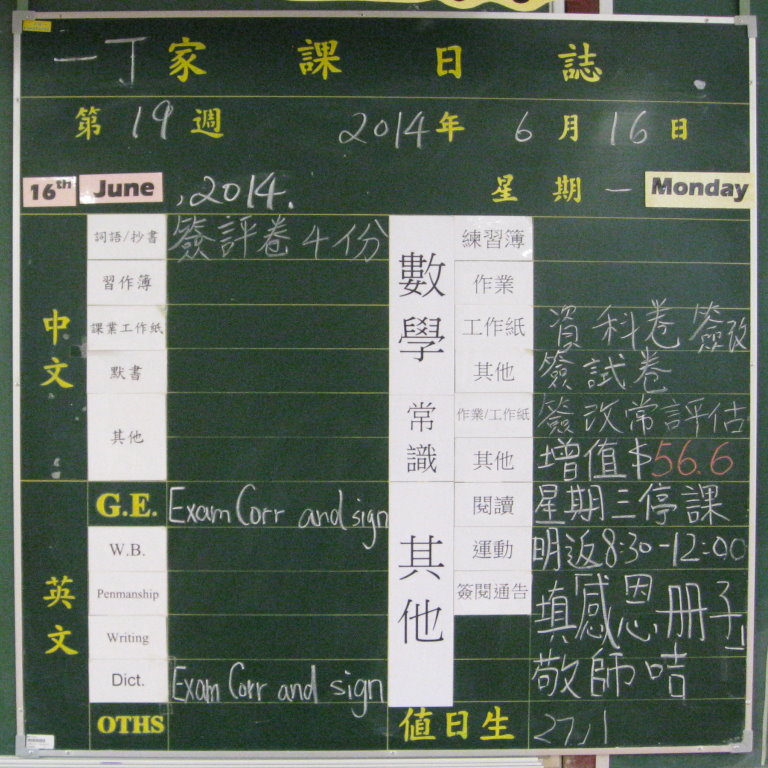 一丁家課日誌
第19週 2014年6月16日
16th June, 2014. 星期一 Monday
中文
詞語/抄書 簽評卷4份
習作簿
課業工作紙
默書
其他
英文
G.E. Exam Corr and sign
W.B.
Penmanship
Writing
Dict. Exam Corr and sign
OTHS
數學
練習簿
作業
工作紙 資料卷簽改
其他 簽試卷
常識
作業/工作紙 簽改常評估
其他 增值$56.6
其他
閱讀 星期三停課
運動 明返8:30-12:00
簽閱通告 填感恩册子
敬師咭
值日生 27,1